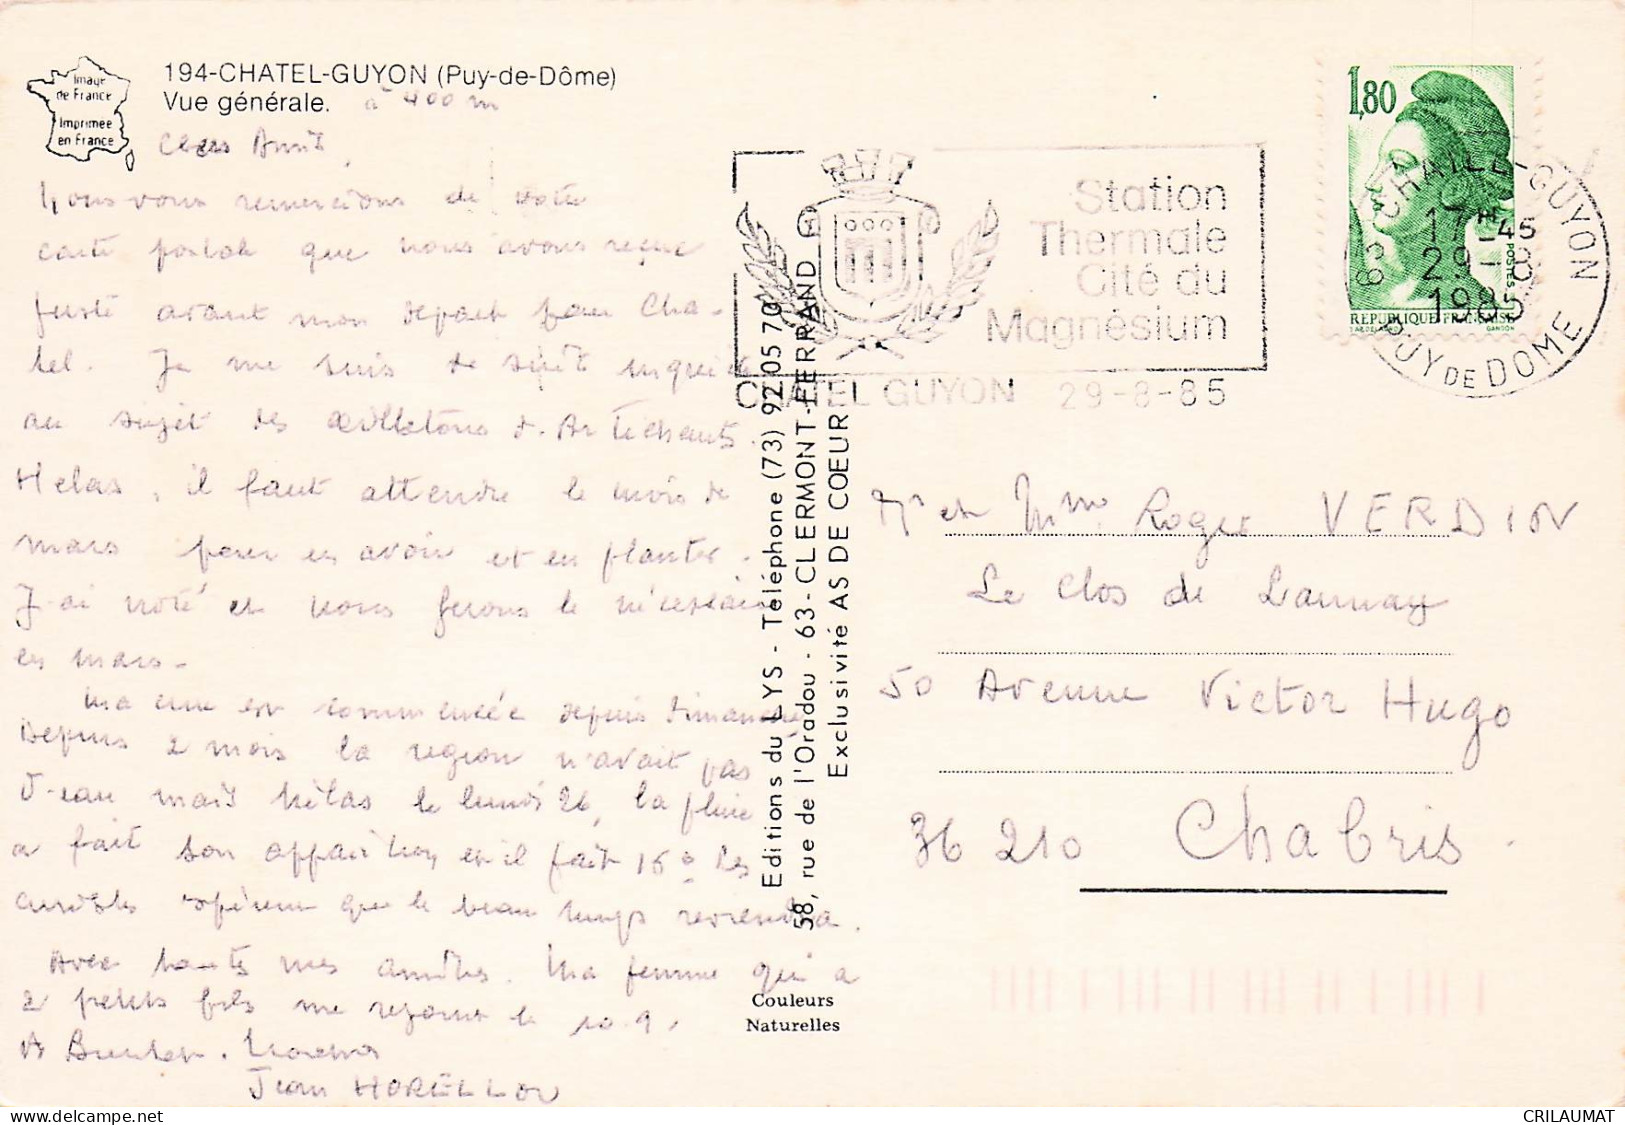 Image
de France
Imprimée
en France
194-CHATEL-GUYON (Puy-de-Dôme)
Vue générale. à 400 m
Chers Amis,
Nous vous remercions de votre
carte postale que nous avons reçue
juste avant mon départ pour Cha-
tel. Je me suis de suite inquiété
au sujet des œilletons d'Artichauts.
Helas, il faut attendre le mois de
mars pour en avoir et en planter.
J'ai noté et nous ferons le nécessaire
en mars.
Ma cure est commencée depuis dimanche
Depuis 2 mois la région n'avait pas
d'eau mais hélas le lundi 26, la pluie
a fait son apparition et il fait 15° Les
curistes espèrent que le beau temps reviendra.
Avec toutes mes amitiés. Ma femme qui a
2 petits fils me rejoint le 10.9.
Jean HORELLOU
Editions du LYS - Téléphone (73) 92 05 70
58, rue de l'Oradou - 63 - CLERMONT-FERRAND
Exclusivité AS DE CŒUR
Couleurs
Naturelles
Station
Thermale
Cité du
Magnésium
CHATEL GUYON 29-8-85
1,80
POSTES
REPUBLIQUE FRANÇAISE
GANDON
63 CHATEL-GUYON
17H-45
29-8
1985
PUY DE DOME
Mr et Mme Roger VERDIN
Le Clos de Launay
50 Avenue Victor Hugo
36 210 Chabris
CRILAUMAT